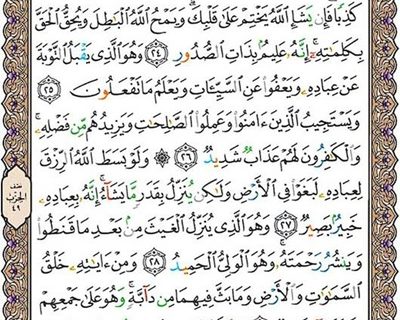 كَذِبًا فَإِن يَشَإِ ٱللَّهُ يَخْتِمْ عَلَىٰ قَلْبِكَ ۗ وَيَمْحُ ٱللَّهُ ٱلْبَٰطِلَ وَيُحِقُّ ٱلْحَقَّ
بِكَلِمَٰتِهِۦٓ ۚ إِنَّهُۥ عَلِيمٌۢ بِذَاتِ ٱلصُّدُورِ ٢٤ وَهُوَ ٱلَّذِى يَقْبَلُ ٱلتَّوْبَةَ
عَنْ عِبَادِهِۦ وَيَعْفُوا۟ عَنِ ٱلسَّيِّـَٔاتِ وَيَعْلَمُ مَا تَفْعَلُونَ ٢٥
وَيَسْتَجِيبُ ٱلَّذِينَ ءَامَنُوا۟ وَعَمِلُوا۟ ٱلصَّٰلِحَٰتِ وَيَزِيدُهُم مِّن فَضْلِهِۦ ۚ
وَٱلْكَٰفِرُونَ لَهُمْ عَذَابٌ شَدِيدٌ ٢٦ ۞ وَلَوْ بَسَطَ ٱللَّهُ ٱلرِّزْقَ
لِعِبَادِهِۦ لَبَغَوْا۟ فِى ٱلْأَرْضِ وَلَٰكِن يُنَزِّلُ بِقَدَرٍ مَّا يَشَآءُ ۚ إِنَّهُۥ بِعِبَادِهِۦ
خَبِيرٌۢ بَصِيرٌ ٢٧ وَهُوَ ٱلَّذِى يُنَزِّلُ ٱلْغَيْثَ مِنۢ بَعْدِ مَا قَنَطُوا۟
وَيَنشُرُ رَحْمَتَهُۥ ۚ وَهُوَ ٱلْوَلِىُّ ٱلْحَمِيدُ ٢٨ وَمِنْ ءَايَٰتِهِۦ خَلْقُ
ٱلسَّمَٰوَٰتِ وَٱلْأَرْضِ وَمَا بَثَّ فِيهِمَا مِن دَآبَّةٍ ۚ وَهُوَ عَلَىٰ جَمْعِهِمْ
نصف
الحزب
٤٩